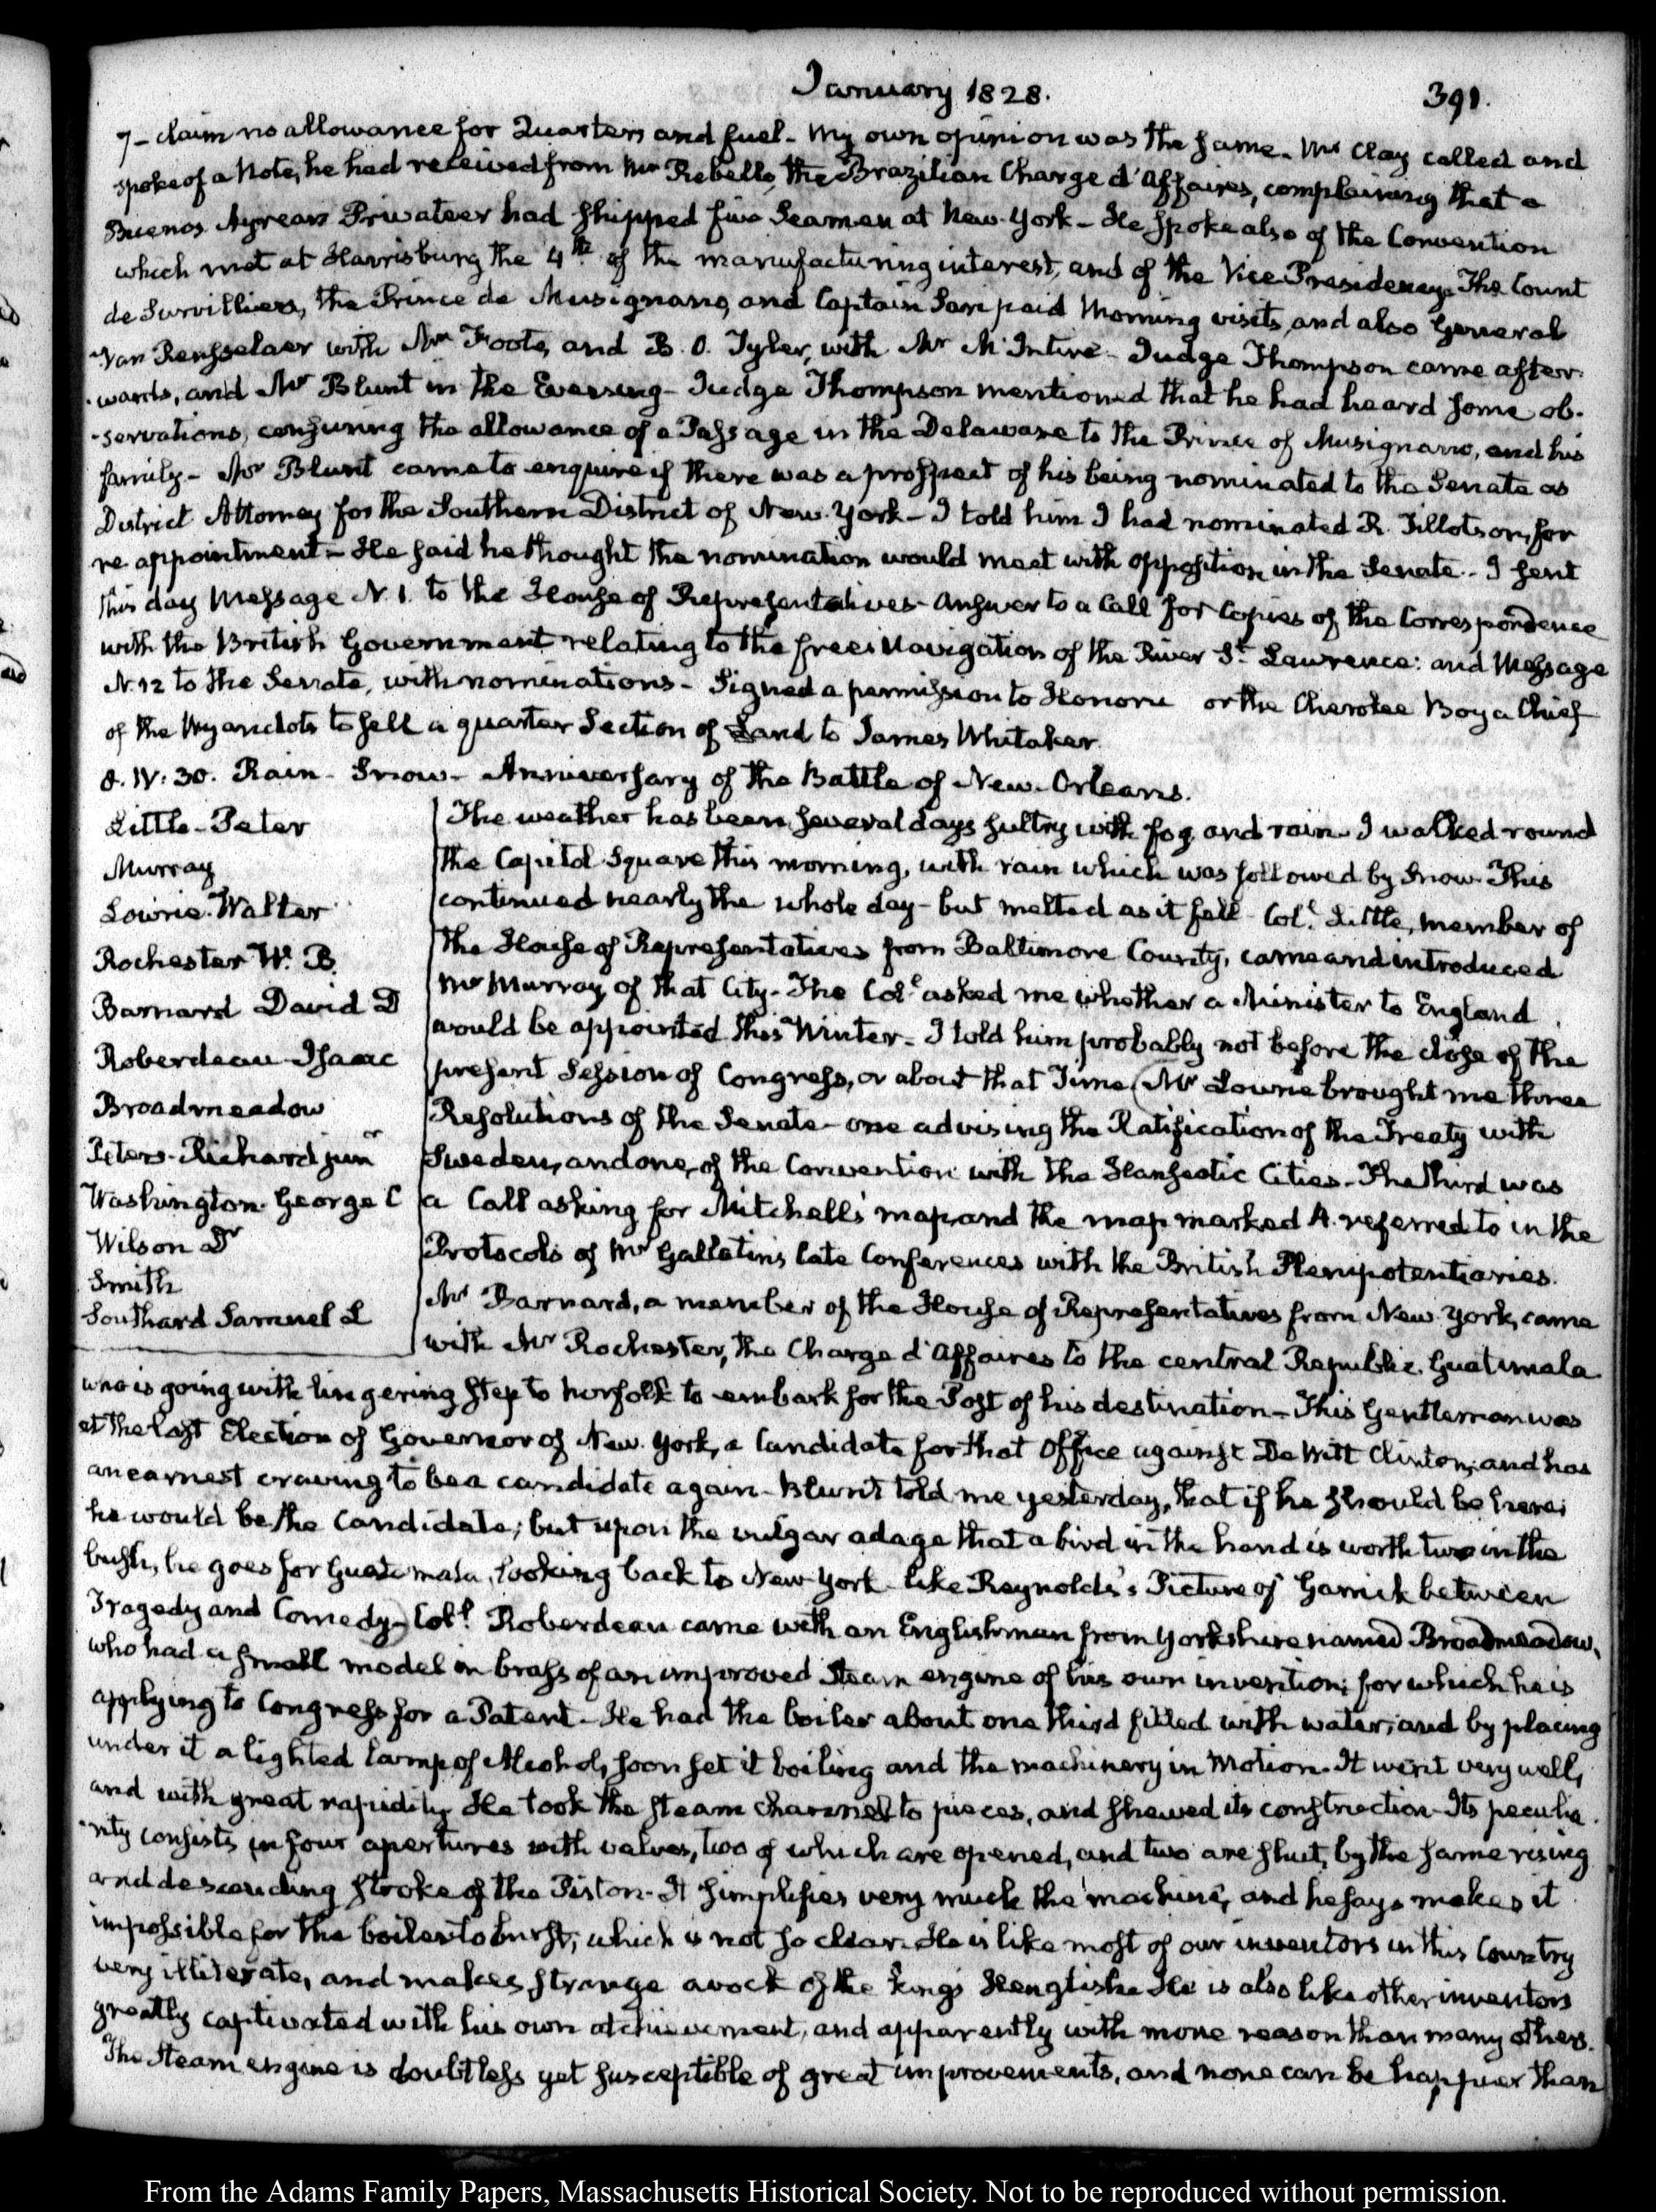 January 1828.
391.
7 - claim no allowance for Quarters and fuel - My own opinion was the same. Mr Clay called and
spoke of a Note, he had received from Mr Rebello, the Brazilian Charge d'Affaires, complaining that a
Buenos Ayrean Privateer had shipped five Seamen at New-York - He spoke also of the Convention
which met at Harrisburg the 4th of the manufacturing interest, and of the Vice-Presidency. The Count
de Survilliers, the Prince de Musignano, and Captain Sari paid morning visits, and also General
Van Rensselaer with Mr Foote, and B. O. Tyler, with Mr McIntire - Judge Thompson came after-
-wards, and Mr Blunt in the Evening - Judge Thompson mentioned that he had heard some ob-
-servations, censuring the allowance of a Passage in the Delaware to the Prince of Musignano, and his
family - Mr Blunt came to enquire if there was a prospect of his being nominated to the Senate as
District Attorney for the Southern District of New-York - I told him I had nominated R. Tillotson, for
re-appointment - He said he thought the nomination would meet with opposition in the Senate - I sent
this day Message N. 1. to the House of Representatives - Answer to a Call for Copies of the Correspondence
with the British Government relating to the free Navigation of the River St. Lawrence: and Message
N. 12 to the Senate, with nominations - Signed a permission to Honoru or the Cherokee Boy a Chief
of the Wyandots to sell a quarter Section of Land to James Whitaker.
8. IV: 30. Rain - Snow - Anniversary of the Battle of New-Orleans.
Little - Peter
Murray
Lowrie. Walter
Rochester W. B.
Barnard David D
Roberdeau Isaac
Broadmeadow
Peters - Richard junr
Washington. George C
Wilson Dr
Smith
Southard Samuel L
The weather has been several days sultry with fog and rain. I walked round
the Capitol Square this morning, with rain which was followed by Snow. This
continued nearly the whole day - but melted as it fell - Col. Little, member of
the House of Representatives from Baltimore County, came and introduced
Mr Murray of that City - The Col. asked me whether a Minister to England
would be appointed this Winter - I told him probably not before the close of the
present Session of Congress, or about that Time (Mr Lowrie brought me three
Resolutions of the Senate - one advising the Ratification of the Treaty with
Sweden, and one, of the Convention with the Hanseatic Cities - The third was
a Call asking for Mitchell's map and the map marked A. referred to in the
Protocols of Mr Gallatin's late Conferences with the British Plenipotentiaries.
Mr Barnard, a member of the House of Representatives from New York, came
with Mr Rochester, the Charge d'Affaires to the central Republic Guatimala
who is going with lingering step to Norfolk to embark for the Post of his destination - This Gentleman was
at the last Election of Governor of New-York, a Candidate for that Office against De Witt Clinton; and has
an earnest craving to be a candidate again - Blunt told me yesterday, that if he should be here;
he would be the Candidate; but upon the vulgar adage that a bird in the hand is worth two in the
bush, he goes for Guatimala, looking back to New-York like Reynolds's Picture of Garrick between
Tragedy and Comedy) Coll. Roberdeau came with an Englishman from Yorkshire named Broadmeadow,
who had a small model in brass of an improved Steam engine of his own invention; for which he is
applying to Congress for a Patent - He had the boiler about one third filled with water; and by placing
under it a lighted lamp of Alcohol, soon set it boiling and the machinery in motion. It went very well,
and with great rapidity. He took the steam channel to pieces, and shewed its construction - Its peculia-
-rity consists in four apertures with valves, two of which are opened, and two are shut, by the same rising
and descending stroke of the Piston - It simplifies very much the machine, and he says makes it
impossible for the boiler to burst; which is not so clear. He is like most of our inventors in this Country
very illiterate, and makes strange avock of the King's Henglish. He is also like other inventors
greatly captivated with his own atchievement, and apparently with more reason than many others.
The Steam engine is doubtless yet susceptible of great improvements, and none can be happier than
From the Adams Family Papers, Massachusetts Historical Society. Not to be reproduced without permission.